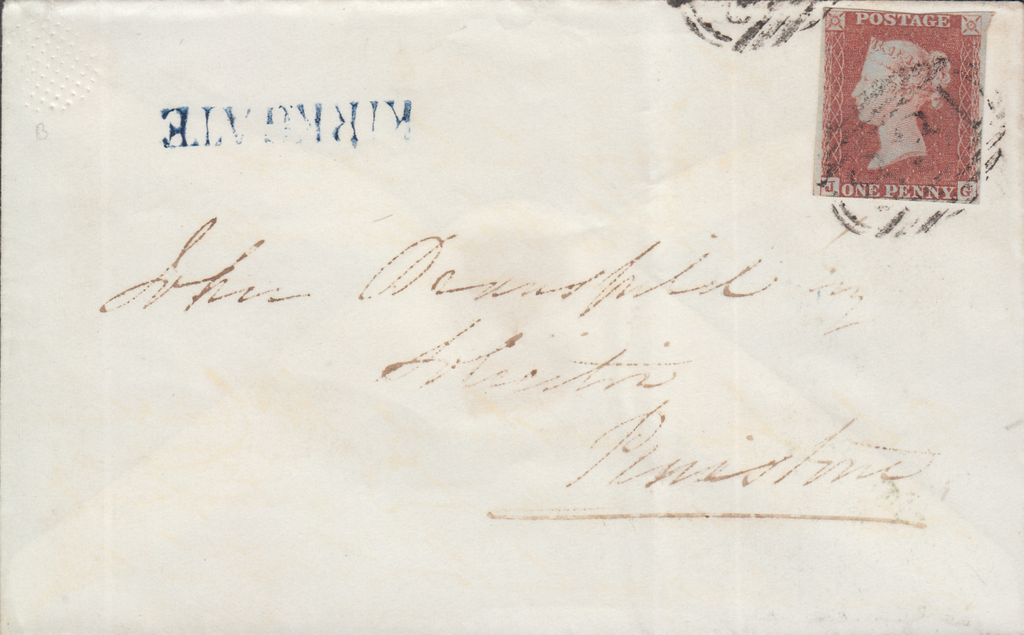 KIRKGATE
POSTAGE
J ONE PENNY G
John Dransfield
Solicitor
Penistone
B